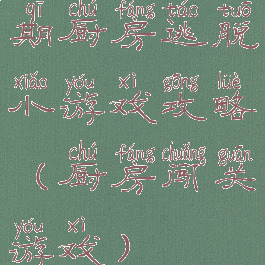 qī chú fáng táo tuō
期厨房逃脱
xiǎo yóu xì gōng lüè
小游戏攻略
chú fáng chuǎng guān
（厨房闯关
yóu xì
游戏）